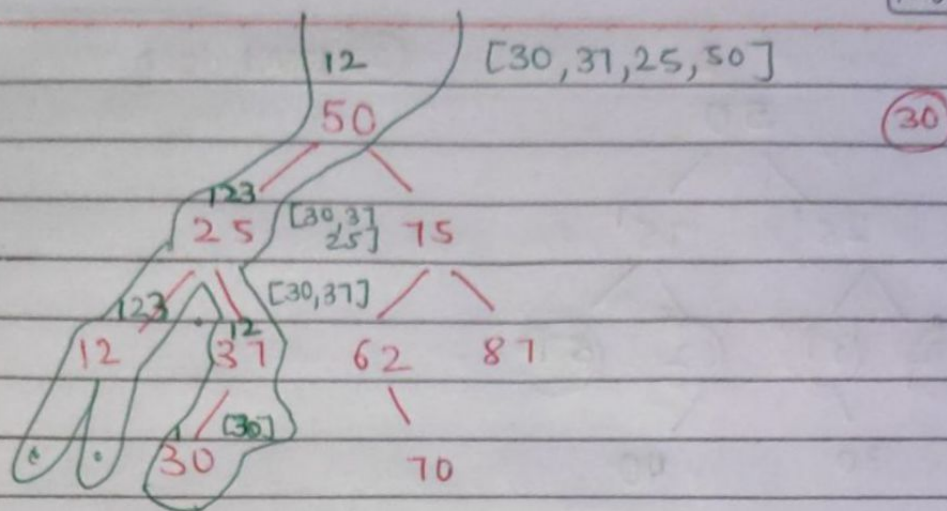 12 [30,37,25,50]
50 30
123
25 [30,37 25] 75
123 12 [30,37]
12 37 62 87
1 [30]
30 70